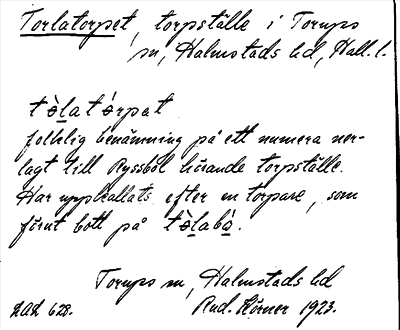 Torlatorpet, torpställe i Torups
sn, Halmstads hd, Hall. l.
tò̱latórpat
folklig benämning på ett numera ner-
lagt till Ryssböl hörande torpställe.
Har uppkallats efter en torpare, som
förut bott på tò̱labó̱.
Torups sn, Halmstads hd
Rud. Körner 1923.
628.